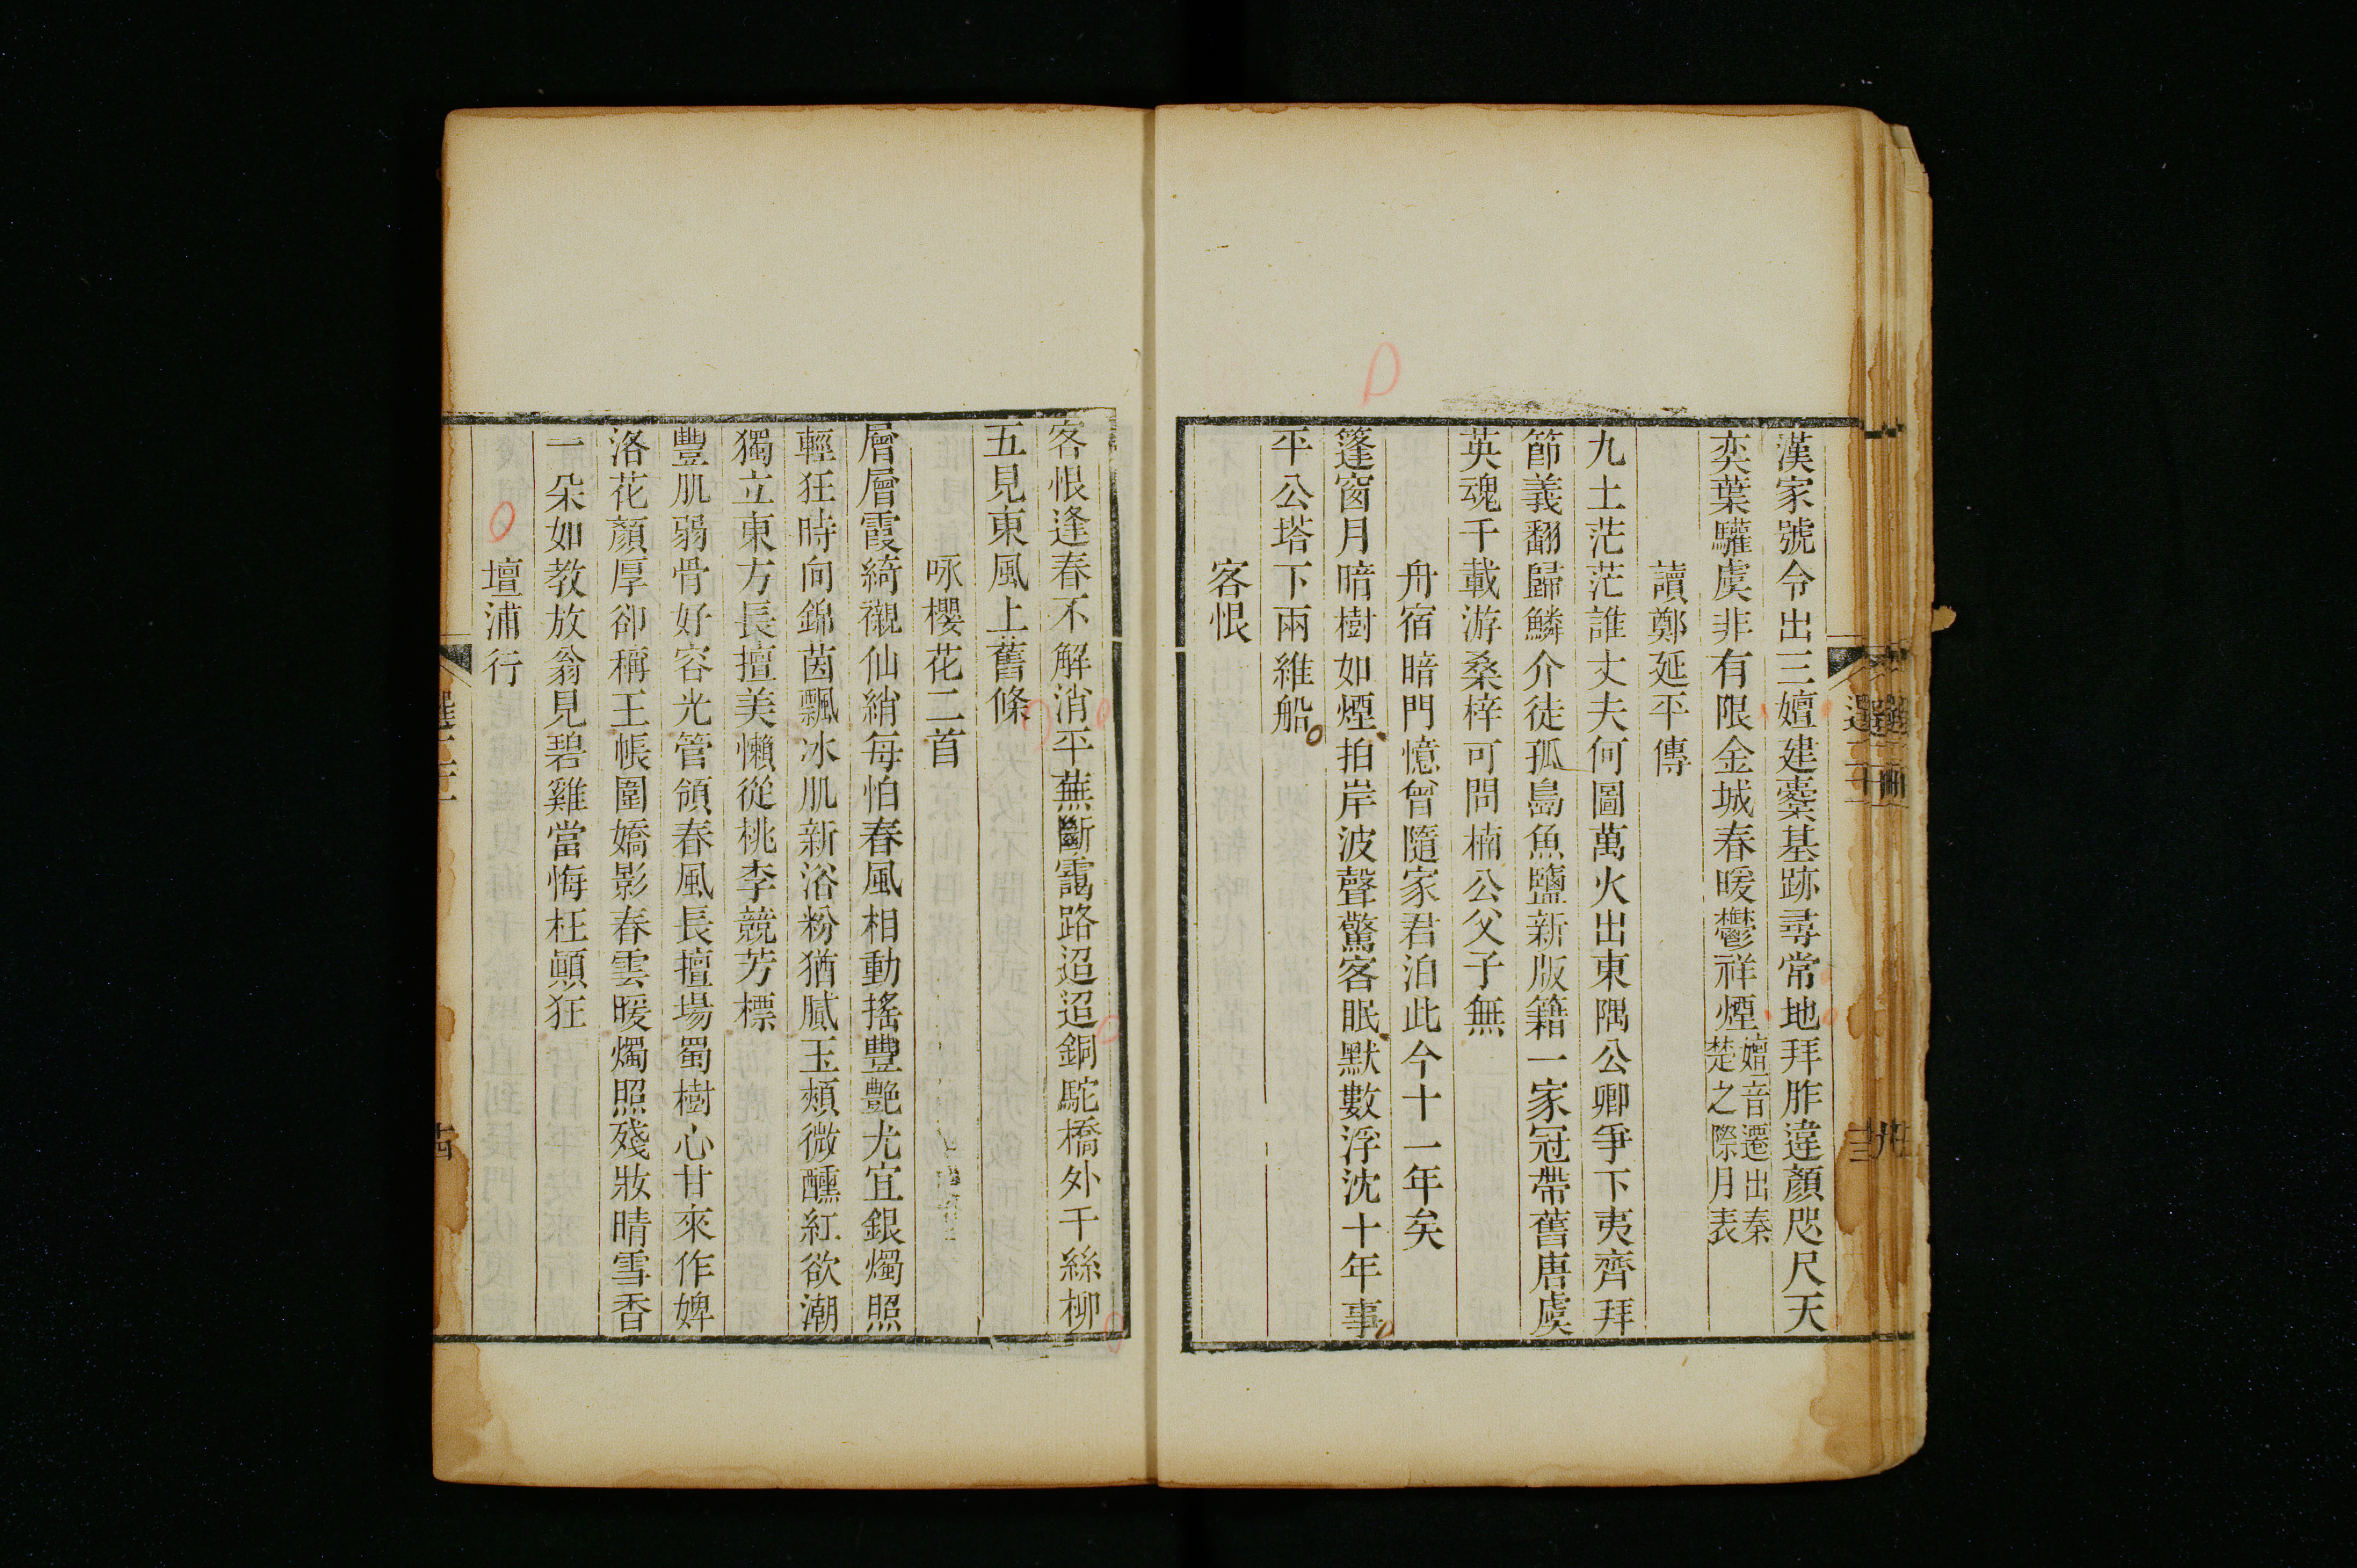 漢家號令出三嬗建櫜基跡尋常地拜胙違顏咫尺天
奕葉驩虞非有限金城春暖鬱祥煙
嬗音遷出秦
楚之際月表
讀鄭延平傳
九土茫茫誰丈夫何圖萬火出東隅公卿爭下夷齊拜
節義翻歸鱗介徒孤島魚鹽新版籍一家冠帶舊唐虞
英魂千載游桑梓可問楠公父子無
舟宿暗門憶曾隨家君泊此今十一年矣
篷窗月暗樹如煙拍岸波聲驚客眠默數浮沈十年事
平公塔下兩維船
客恨
客恨逢春不解消平蕪斷靄路迢迢銅駝橋外千絲柳
五見東風上舊條
咏櫻花二首
層層霞綺襯仙綃每怕春風相動搖豐艷尤宜銀燭照
輕狂時向錦茵飄冰肌新浴粉猶膩玉頰微醺紅欲潮
獨立東方長擅美懶從桃李競芳標
豐肌弱骨好容光管領春風長擅場蜀樹心甘來作婢
洛花顏厚卻稱王帳圍嬌影春雲暖燭照殘妝晴雪香
一朵如教放翁見碧雞當悔枉顚狂
壇浦行